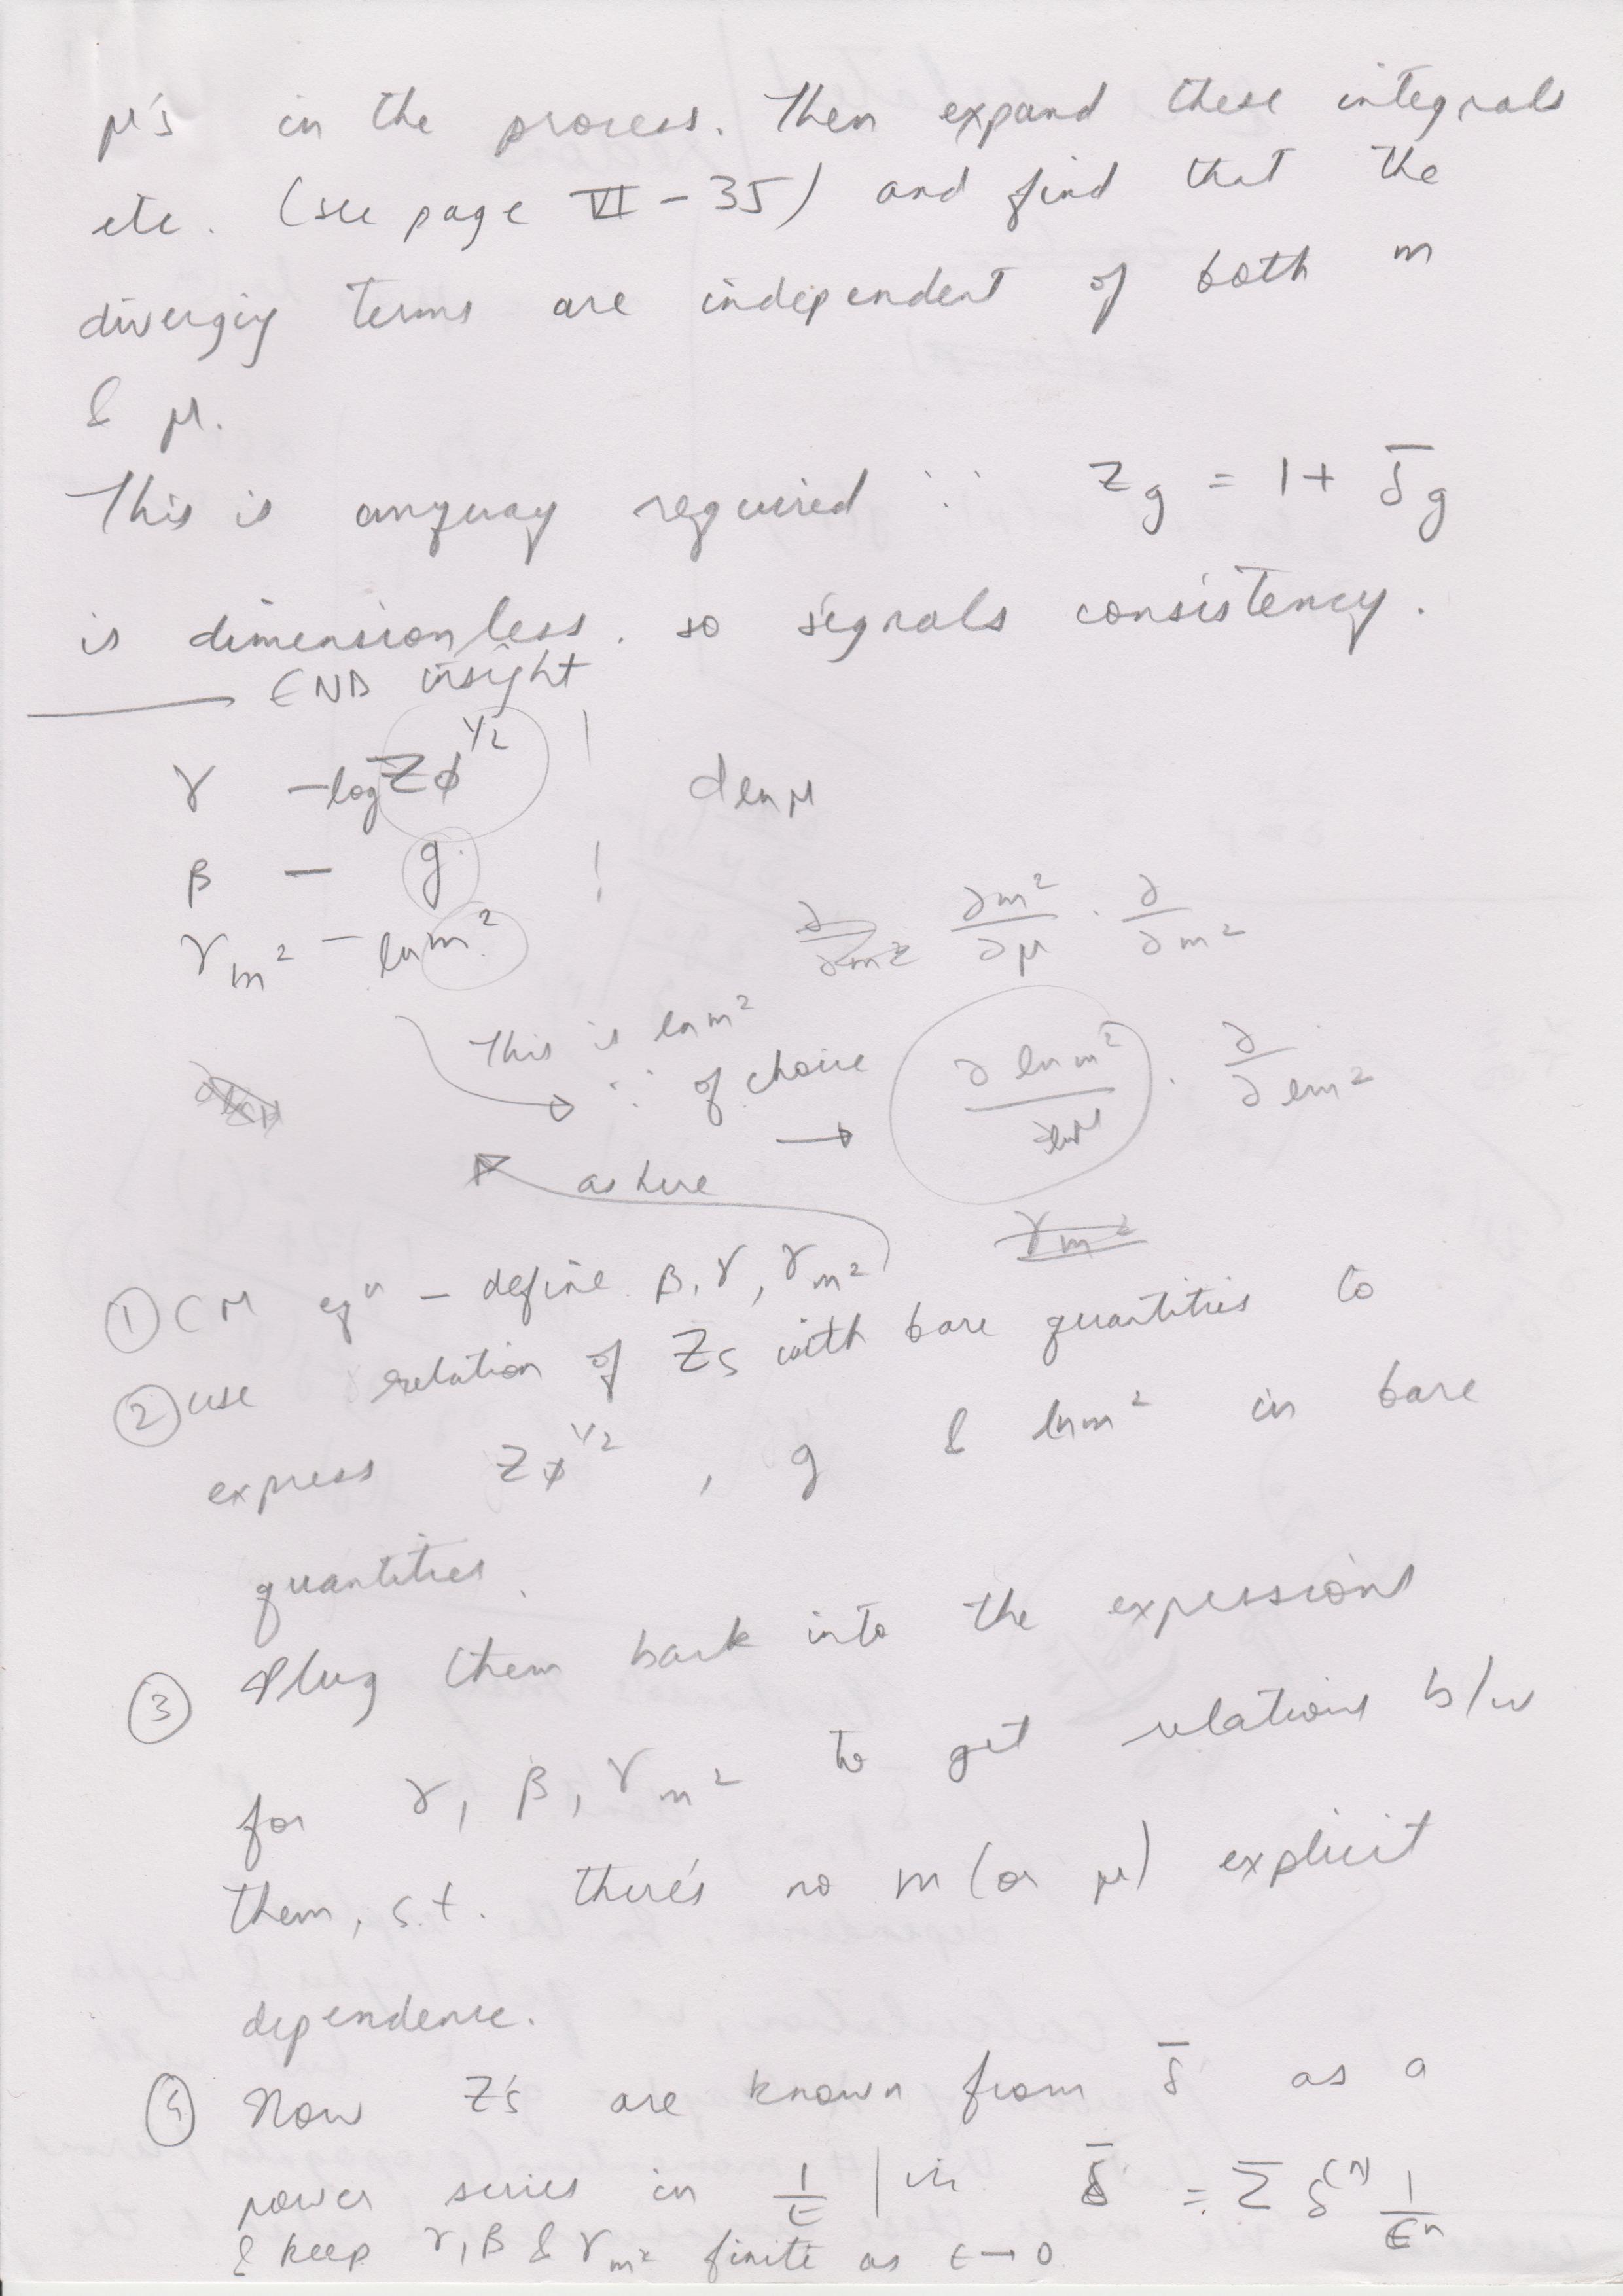 μ's in the process. Then expand these integrals
etc. (see page VI - 35) and find that the
diverging terms are independent of both m
& μ.
This is anyway required ∵ Zg = 1 + δ̄g
is dimensionless. so signals consistency.
END insight
γ - log Zφ^1/2 ! d ln μ
β - g !
γm² - ln m²
∂m²/∂μ · ∂/∂m²
This is ln m²
∵ of choice → ∂ ln m²/∂lnμ · ∂/∂lm²
as here
γm²
① CM eqⁿ - define β, γ, γm²
② use relation of Zs with bare quantities to
express Zφ^1/2, g & ln m² in bare
quantities.
③ Plug them back into the expressions
for γ, β, γm² to get relations b/w
them, s.t. there's no m (or μ) explicit
dependence.
④ Now Z's are known from δ̄ as a
power series in 1/ϵ | in δ̄ = Σ δ^(n) 1/ϵⁿ
& keep γ, β & γm² finite as ϵ → 0